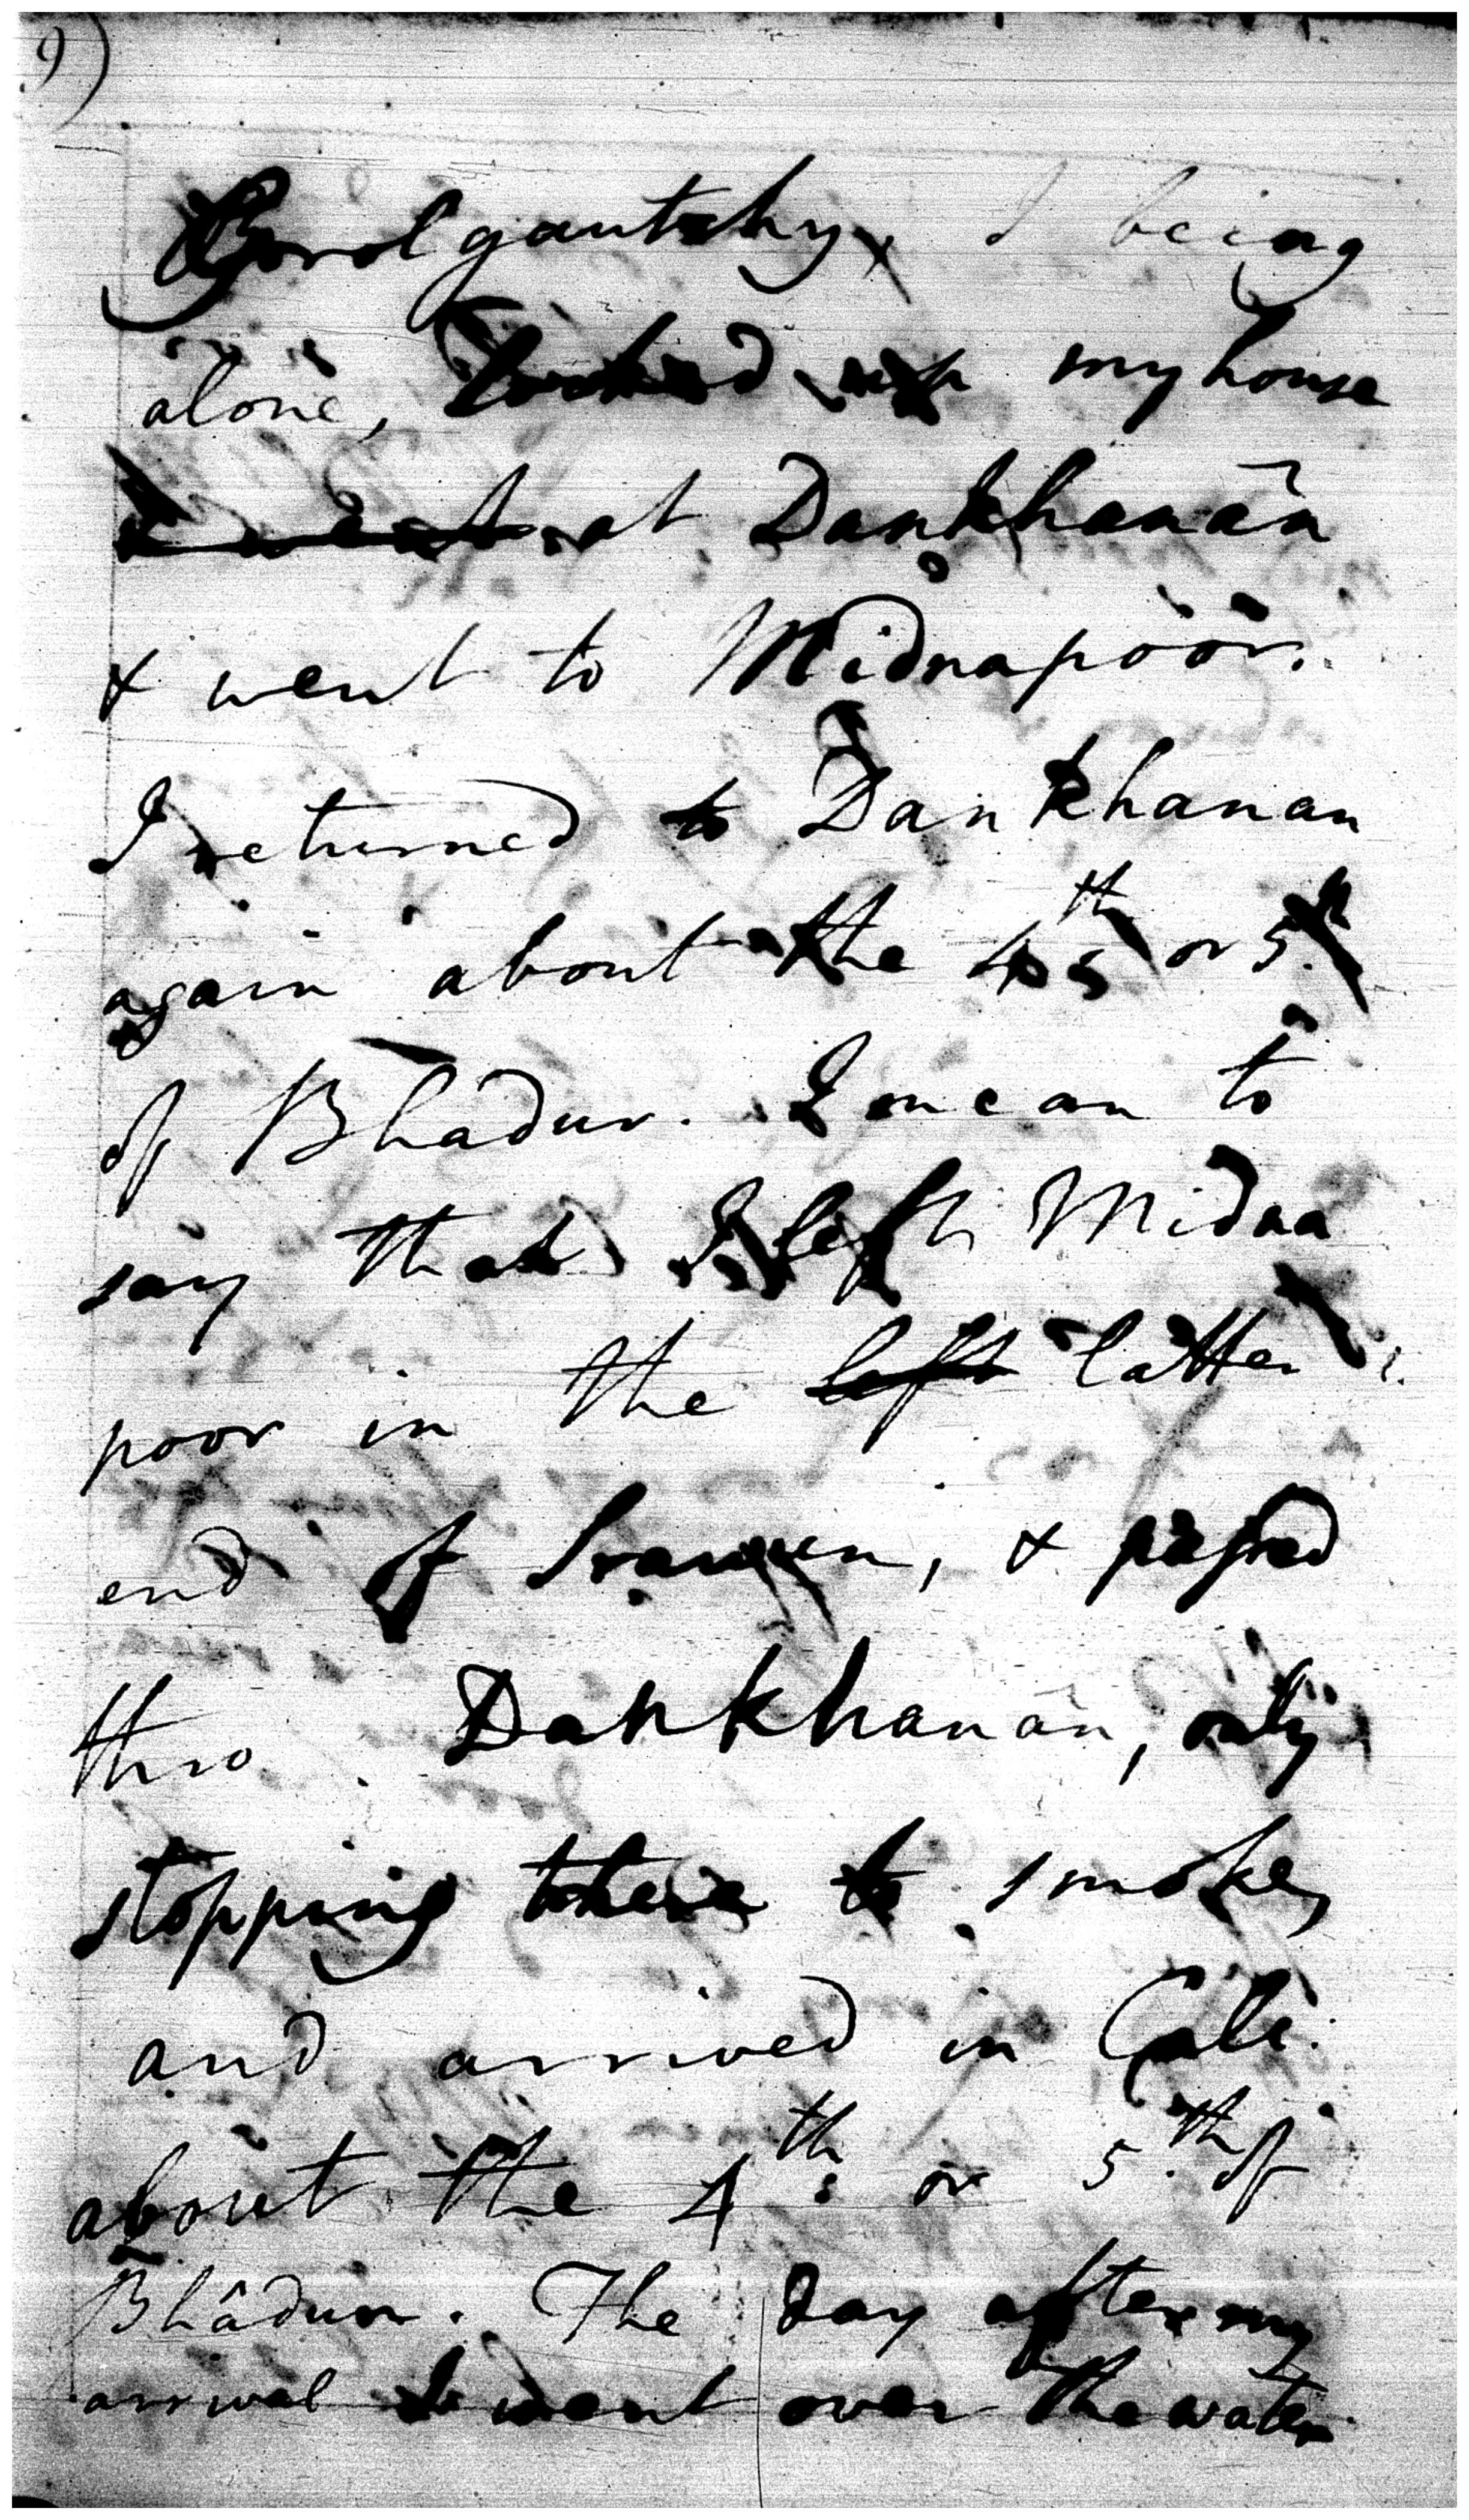 9)
Gorolgautchy, I being
alone, locked up my house
at Dankhanân
& went to Midnapoor.
I returned to Dankhanan
again about the 4th or 5th
of Bhâdur. I mean to
say that I left Midna
poor in the left latter
end of Srawun, & passed
thro Dankhanân, only
stopping there to smoke,
and arrived in Calc.
about the 4th or 5th of
Bhâdur. The day after my
arrival I went over the water